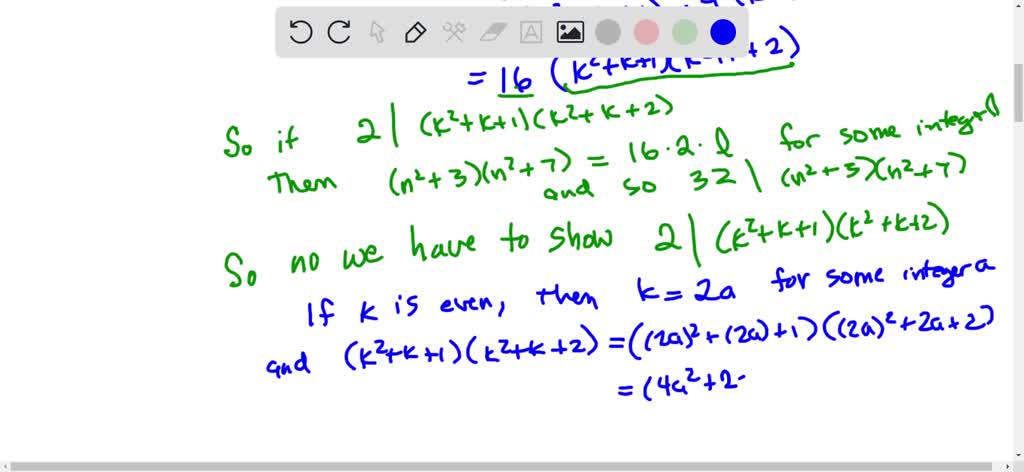 = 16 (k²+k+1)(k²+k+2)
So if 2 | (k²+k+1)(k²+k+2)
Then (n²+3)(n²+7) = 16·2·l for some integ l
and so 32 | (n²+3)(n²+7)
So no we have to show 2 | (k²+k+1)(k²+k+2)
If k is even, then k = 2a for some integer a
and (k²+k+1)(k²+k+2) = ((2a)²+(2a)+1)((2a)²+2a+2)
= (4a²+2